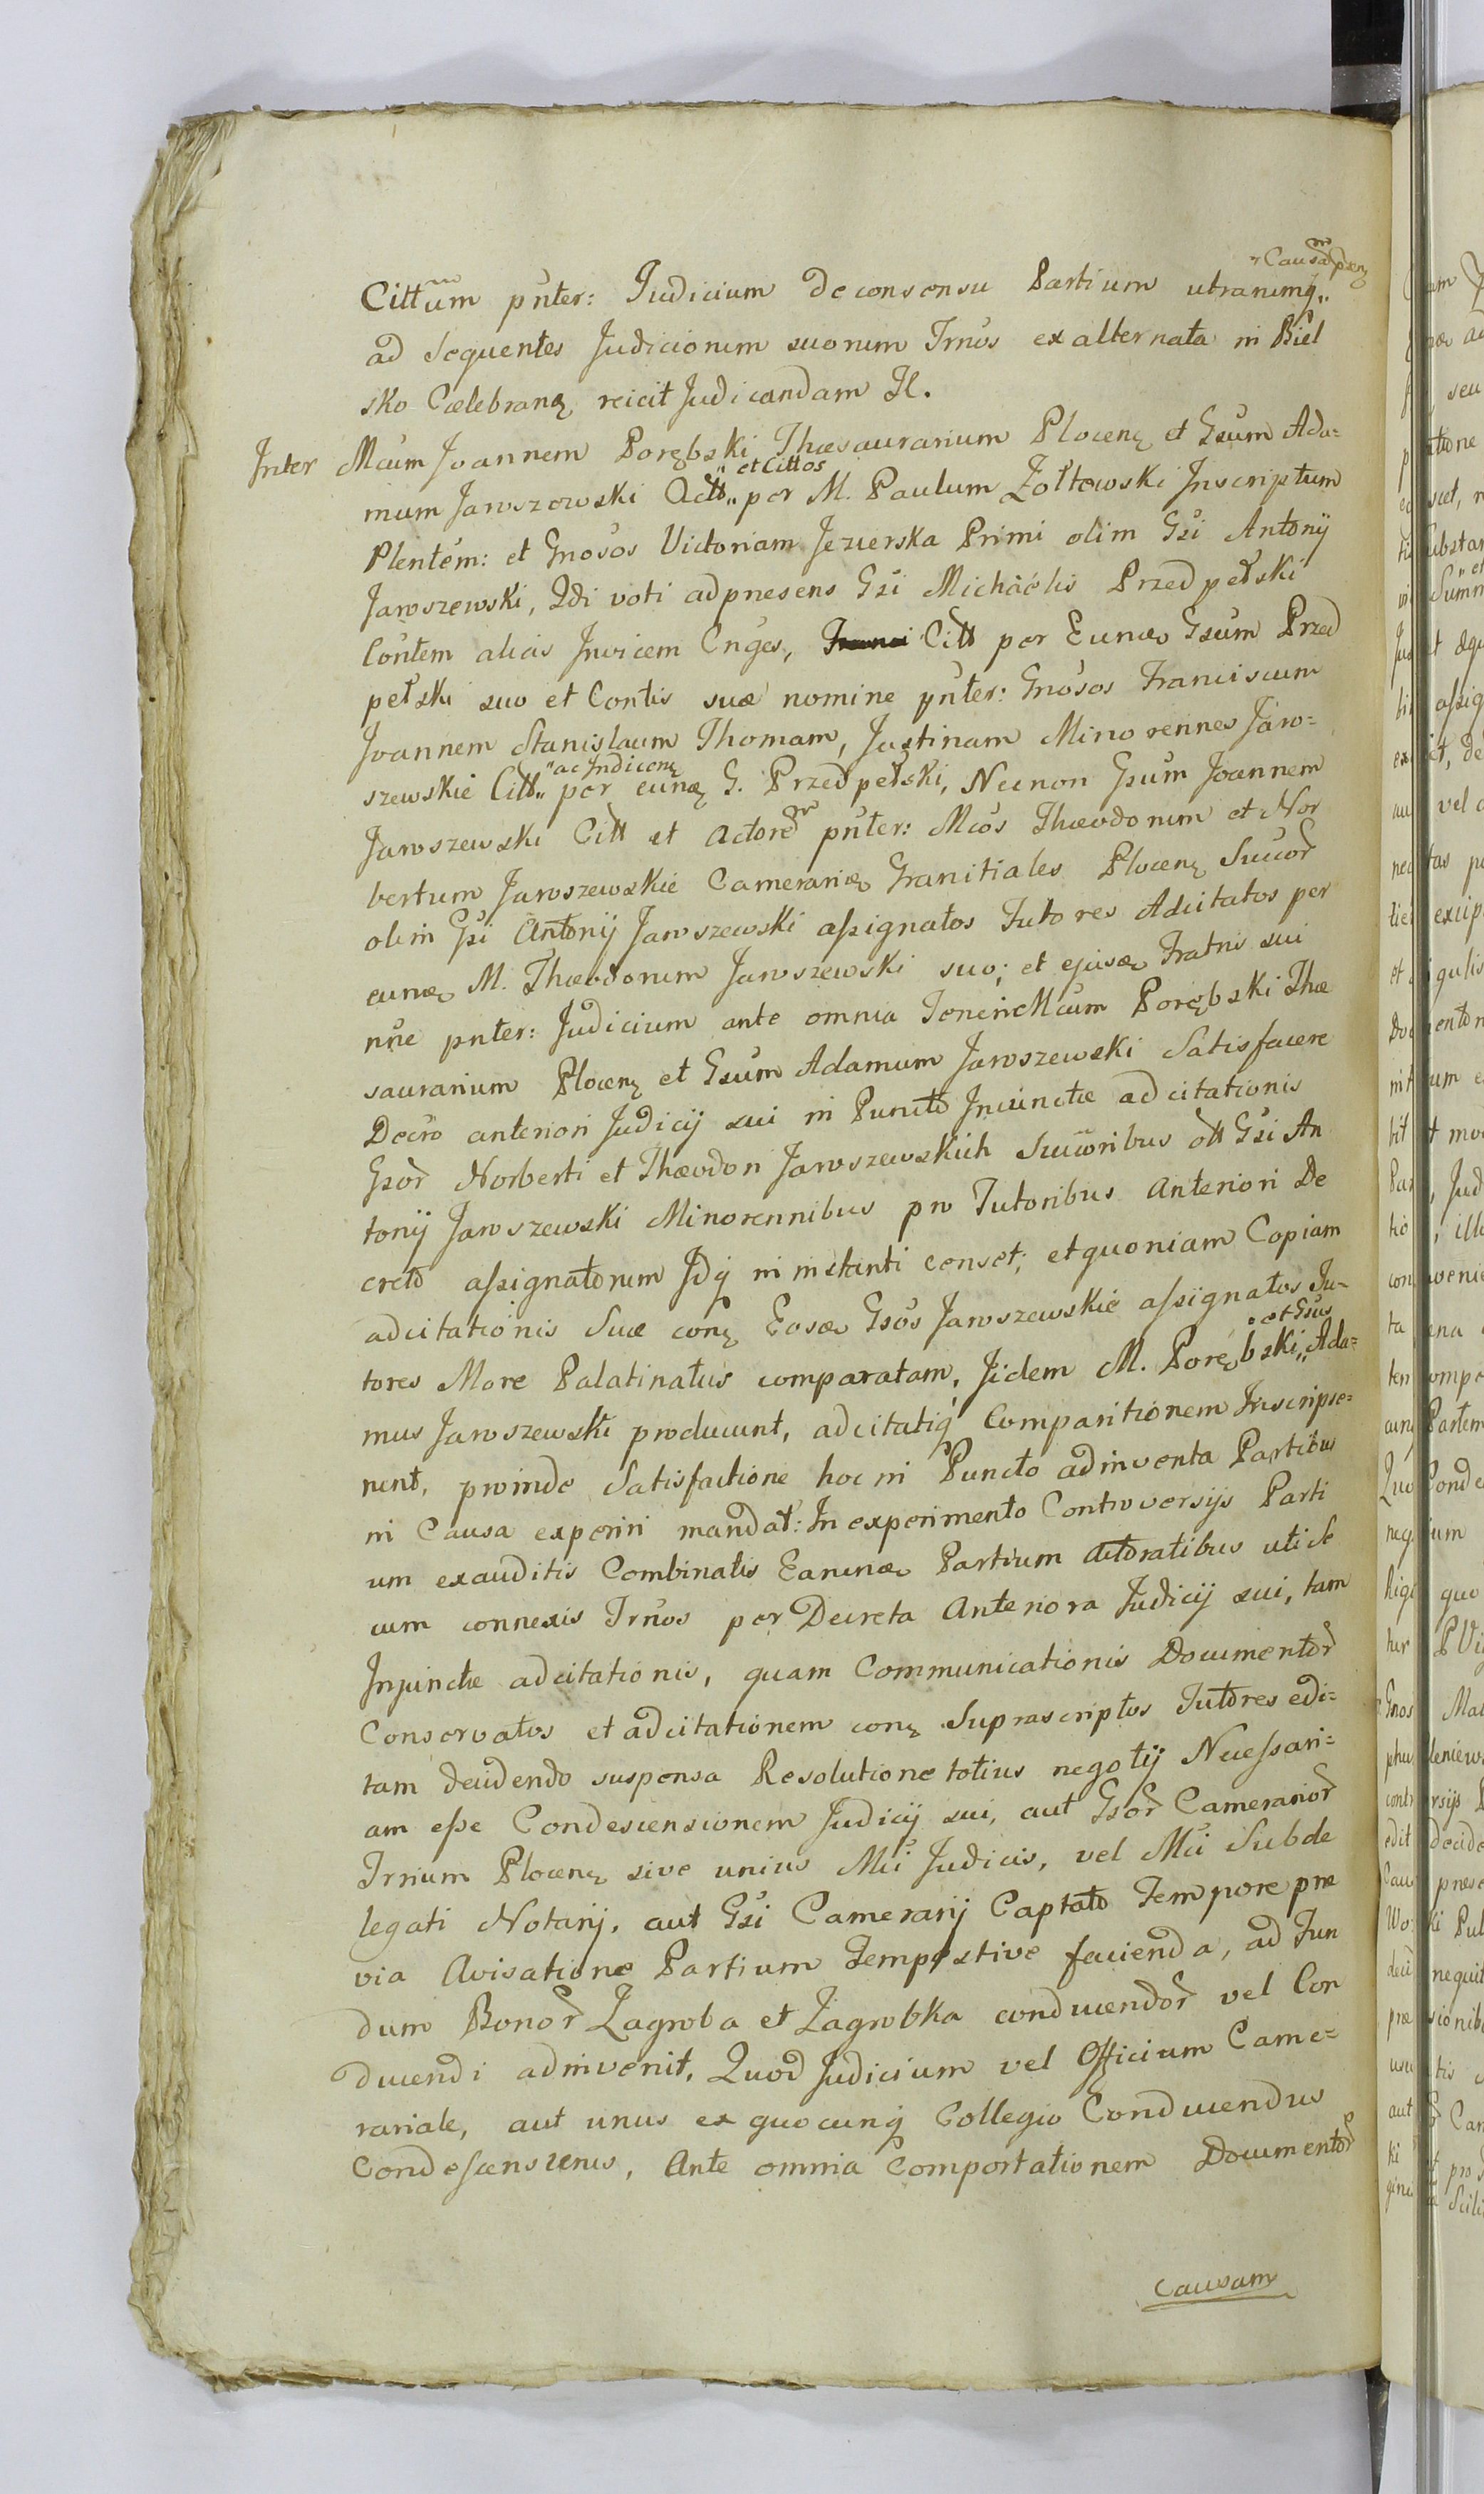 Causam præsen
Cittum pnter: Judicium de consensu Partium utranimq„
ad Sequentes Judiciorum suorum Trnos ex alternata in Biel
sko Cælebranꝫ reicit Judicandam Il.
Inter Mcum Joannem Porębski Thæsaurarium Plocenꝫ et Gsum Ada=
„et Cittos
mum Jaroszewski Actt„ per M. Paulum Żołtowski Inscriptum
Plentem: et Gnosos Victoriam Jezierska Primi olim Gsi Antonij
Jaroszewski, 2di voti ad præsens Gsi Michaelis Przedpełski
Contem alias Invicem Cnges, Citt per Eunde Gsum Przed
pełski suo et Contis suæ nomine pnter: Gnosos Franciscum
Joannem Stanislaum Thomam, Justinam Minorennes Jaro=
„ac Indicenꝫ
szewskie Citt„ per eunꝫ G. Przedpełski, Necnon Gsum Joannem
Jaroszewski Citt et Actorem pnter: Mcos Thæodorum et Nor
bertum Jaroszewskie Camerarios Granitiales Plocenꝫ Succor
olim Gsi Antonij Jaroszewski assignatos Tutores Adcitatos per
eunde M. Thæodorum Jaroszewski suo; et ejusde Fratris sui
nne pnter: Judicium ante omnia Teneri Mcum Porębski Thæ
saurarium Plocenꝫ et Gsum Adamum Jaroszewski Satisfacere
Decro anteriori Judicij sui in Puncto Injunctæ adcitationis
Gsor Norberti et Thæodori Jaroszewskich Succoribus ott Gsi An
tonij Jaroszewski Minorennibus pro Tutoribus Anteriori De
creto assignatorum Idq in instanti censet; et quoniam Copiam
adcitationis Suæ conꝫ Eosde Gsos Jaroszewskie assignatos Tu-
„et Gsus
tores More Palatinatus comparatam, Iidem M. Porębski„ Ada=
mus Jaroszewski producunt, adcitatiq Comparitionem Inscripse=
runt, proinde Satisfactione hoc in Puncto adinventa Partibus
in Causa experiri mandat: In experimento Controversijs Parti
um exauditis Combinatis Earunde Partium Actoratibus uti se
cum connexis Trnos per Decreta Anteriora Judicij sui, tam
Injunctæ adcitationis, quam Communicationis Documentor
Conservatos et adcitationem conꝫ Suprascriptos Tutores edi=
tam decidendo suspensa Resolutione totius negotij Necessari=
am esse Condescensionem Judicij sui, aut Gsor Camerarior
Trrium Plocenꝫ sive unius Mci Judicis, vel Mci Subde
legati Notarij, aut Gsi Camerarij Captato Tempore præ
via Avisatione Partium Tempestive facienda, ad Fun
dum Bonor Zagroba et Zagrobka conducendor vel Con
ducendi adinvenit, Quod Judicium vel Officium Came=
rariale, aut unus ex quocunq Collegio Conducendus
Condescensurus, Ante omnia Comportationem Documentor
Causam